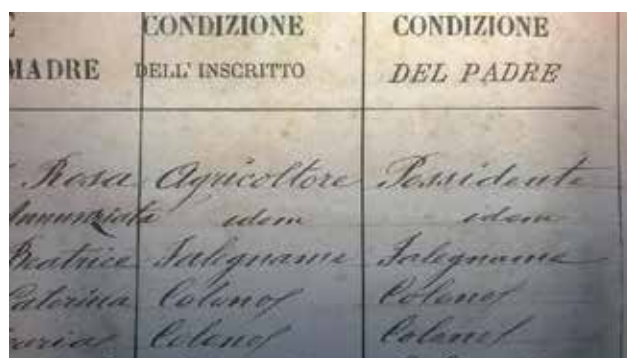 CONDIZIONE CONDIZIONE
MADRE DELL' INSCRITTO DEL PADRE
Rosa Agricoltore Possidente
Annunziata idem idem
Beatrice Falegname Falegname
Caterina Colono Colono
Colono Colono